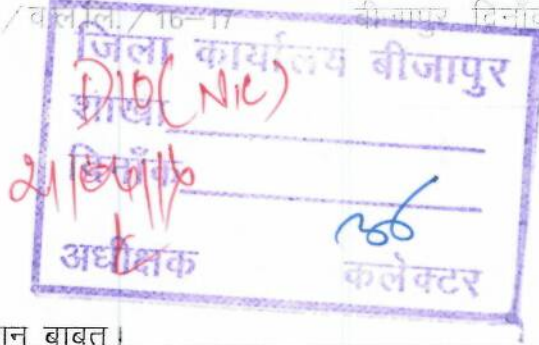 / व.लि.लि. / 16-17 बीजापुर, दिनाँक
जिला कार्यालय बीजापुर
DIO (NIC)
शाखा
दिनाँक
अधीक्षक कलेक्टर
बाबत।